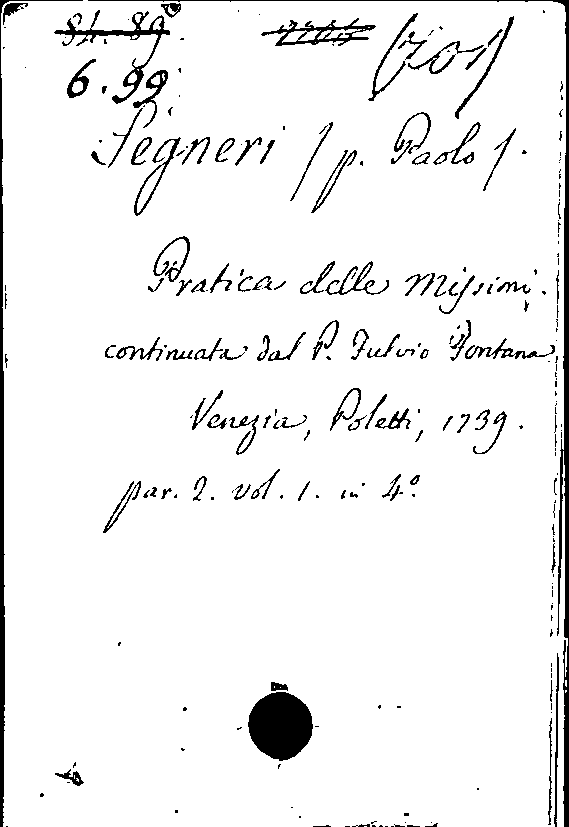 84. 89 (701)
6. 99
Segneri / p. Paolo /.
Pratica delle Missioni.
continuata dal P. Fulvio Fontana
Venezia, Poletti, 1739.
par. 2. vol. 1. in 4º